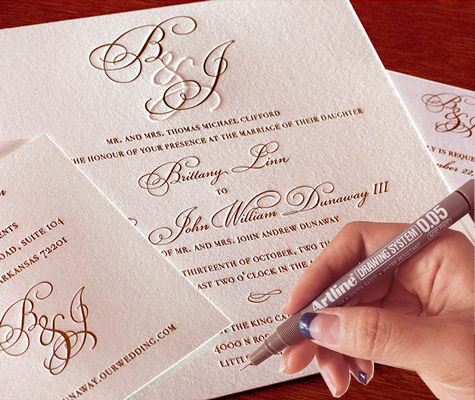 B & J
MR. AND MRS. THOMAS MICHAEL CLIFFORD
THE HONOUR OF YOUR PRESENCE AT THE MARRIAGE OF THEIR DAUGHTER
Brittany Linn
TO
John William Dunaway III
OF MR. AND MRS. JOHN ANDREW DUNAWAY
THIRTEENTH OF OCTOBER, TWO TH
AST TWO O'CLOCK IN THE
OF THE KING CA
4000 N ROD
LITTL
ENTS
OAD, SUITE 104
RKANSAS 72201
B & J
NAWAY.OURWEDDING.COM
B & J
Y IS REQUE
BER 22,
Artline DRAWING SYSTEM 0.05